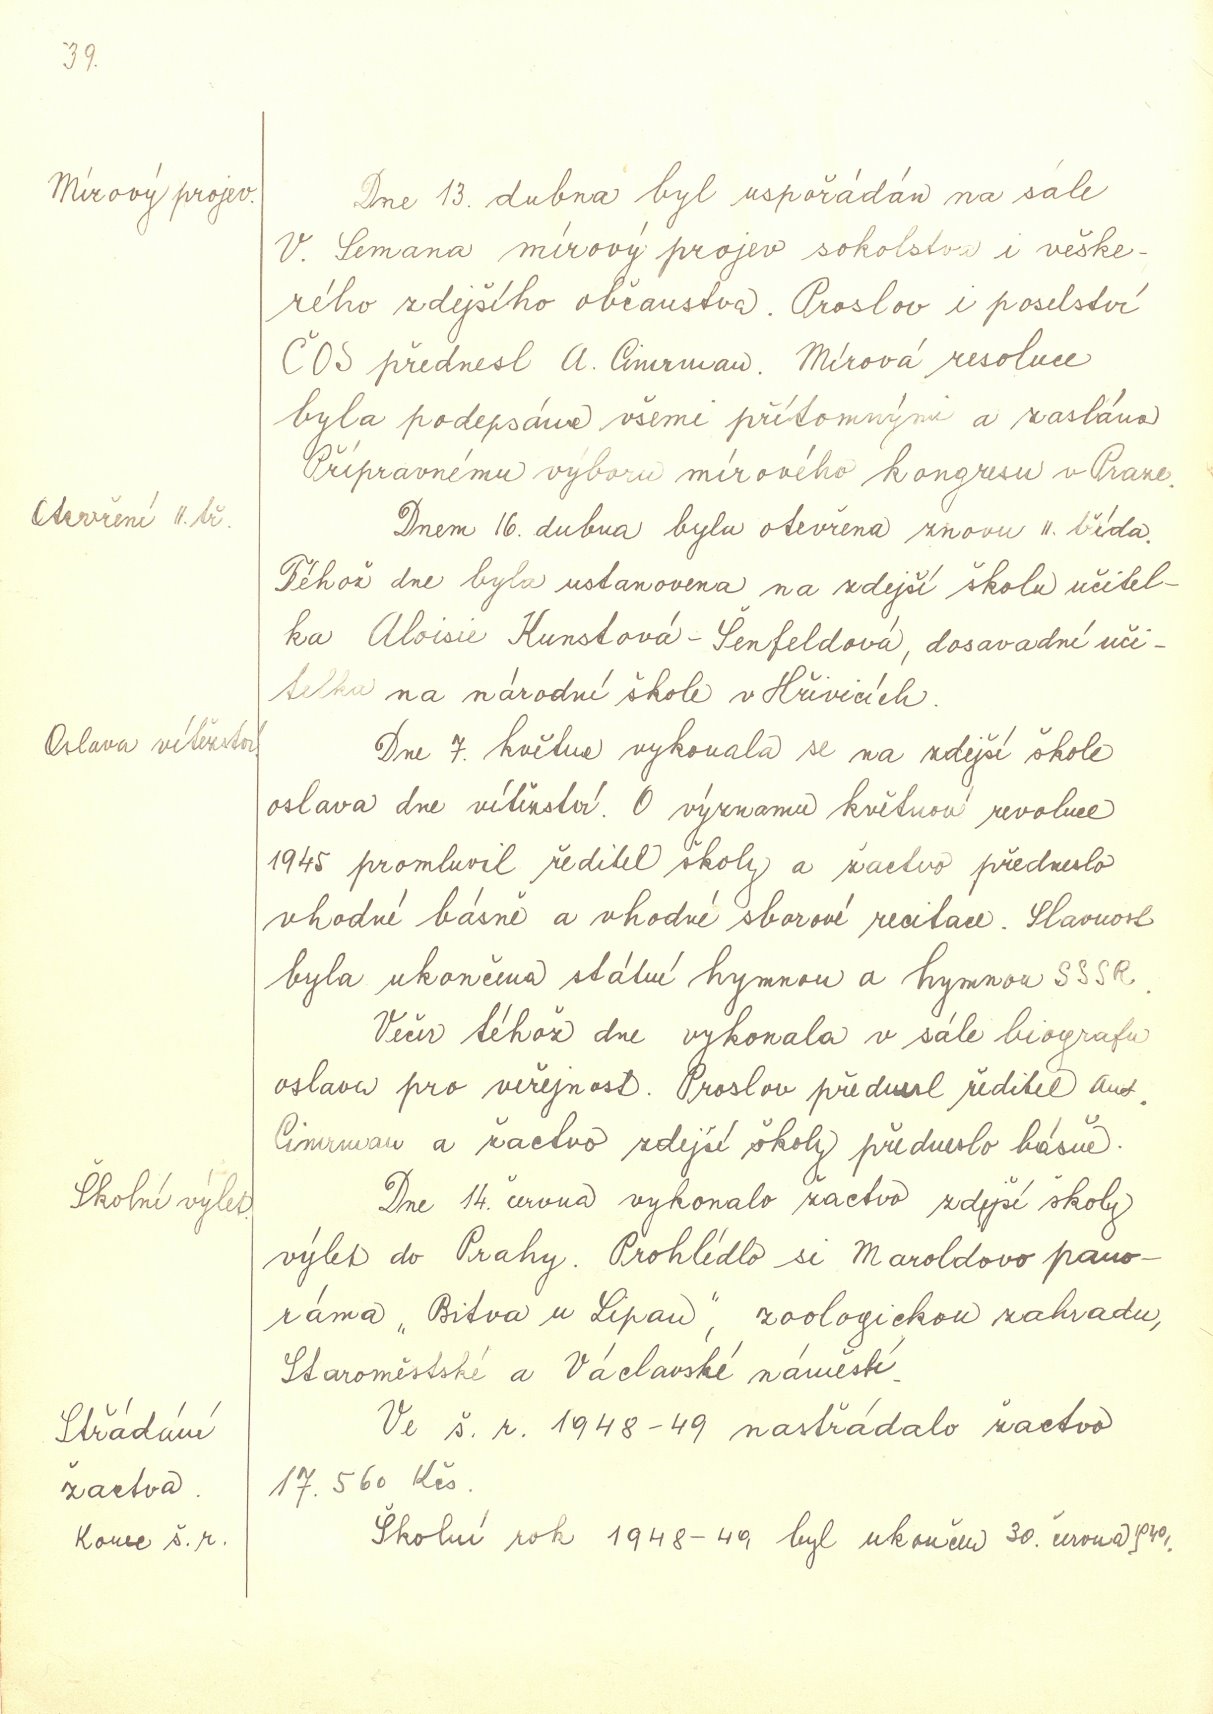 39.
Mírový projev.
Dne 13. dubna byl uspořádán na sále
V. Semana mírový projev sokolstva i veške-
rého zdejšího občanstva. Proslov i poselství
ČOS přednesl A. Cimrman. Mírová resoluce
byla podepsána všemi přítomnými a zaslána
Přípravnému výboru mírového kongresu v Praze.
Otevření II. tř.
Dnem 16. dubna byla otevřena znovu II. třída.
Téhož dne byla ustanovena na zdejší školu učitel-
ka Aloisie Kunstová-Šenfeldová, dosavadní uči-
telka na národní škole v Hřivicích.
Oslava vítězství.
Dne 7. května vykonala se na zdejší škole
oslava dne vítězství. O významu květnové revoluce
1945 promluvil ředitel školy a žactvo předneslo
vhodné básně a vhodné sborové recitace. Slavnost
byla ukončena státní hymnou a hymnou SSSR.
Večer téhož dne vykonala v sále biografu
oslava pro veřejnost. Proslov přednesl ředitel Ant.
Cimrman a žactvo zdejší školy předneslo básně.
Školní výlet.
Dne 14. června vykonalo žactvo zdejší školy
výlet do Prahy. Prohlédlo si Maroldovo pano-
ráma „Bitva u Lipan", zoologickou zahradu,
Staroměstské a Václavské náměstí.
Střádání
žactva.
Ve š. r. 1948-49 nastřádalo žactvo
17.560 Kčs.
Konec š. r.
Školní rok 1948-49 byl ukončen 30. června